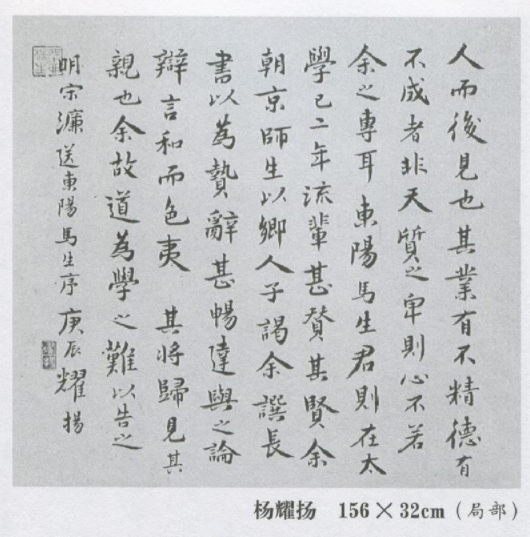 人而後見也其業有不精德有
不成者非天質之卑則心不若
余之專耳東陽馬生君則在太
學已二年流輩甚賛其賢余
朝京師生以鄉人子謁余譔長
書以為贄辭甚暢達與之論
辯言和而色夷 其將歸見其
親也余故道為學之難以告之
明宗濂送東陽馬生序 庚辰 耀揚
杨耀扬 156×32cm（局部）